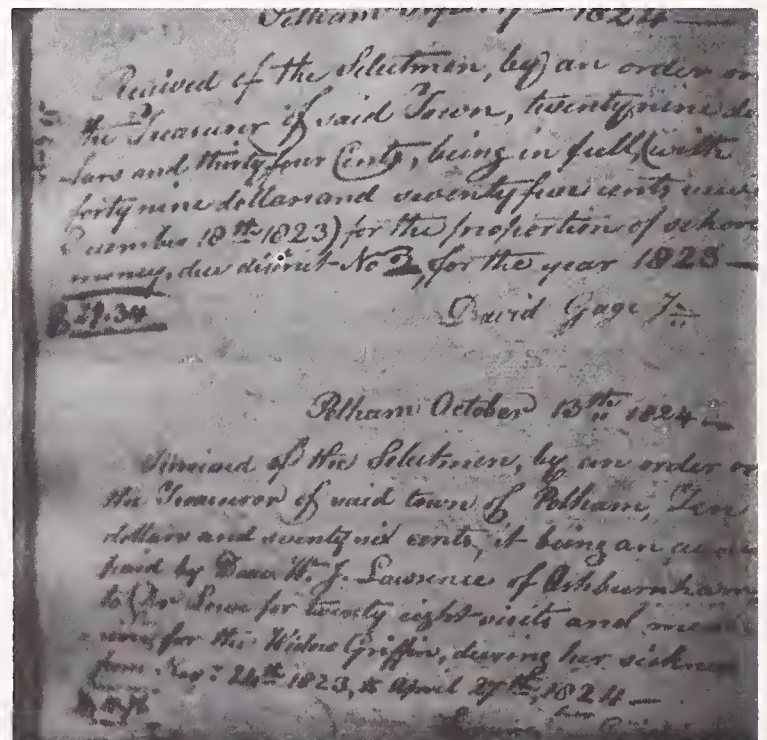 Pelham 1824
Received of the Selectmen, by an order on
the Treasurer of said Town, twentynine do
lars and thirtyfour Cents, being in full (with
forty nine dollars and seventy five cents
ecember 18th 1823) for the proportion of schoo
money, due district No 3, for the year 1823 —
$29.34
David Gage Jn
Pelham October 13th 1824 —
Received of the Selectmen, by an order on
the Treasurer of said town of Pelham, Ten
dollars and seventy six cents, it being an
paid by W. J. Lawrence of Ashburnham
to Dr Lowe for twenty eight visits and me
cine for the Widow Griffin, during her sickne
from Novr 24th 1823, to April 27th, 1824 —